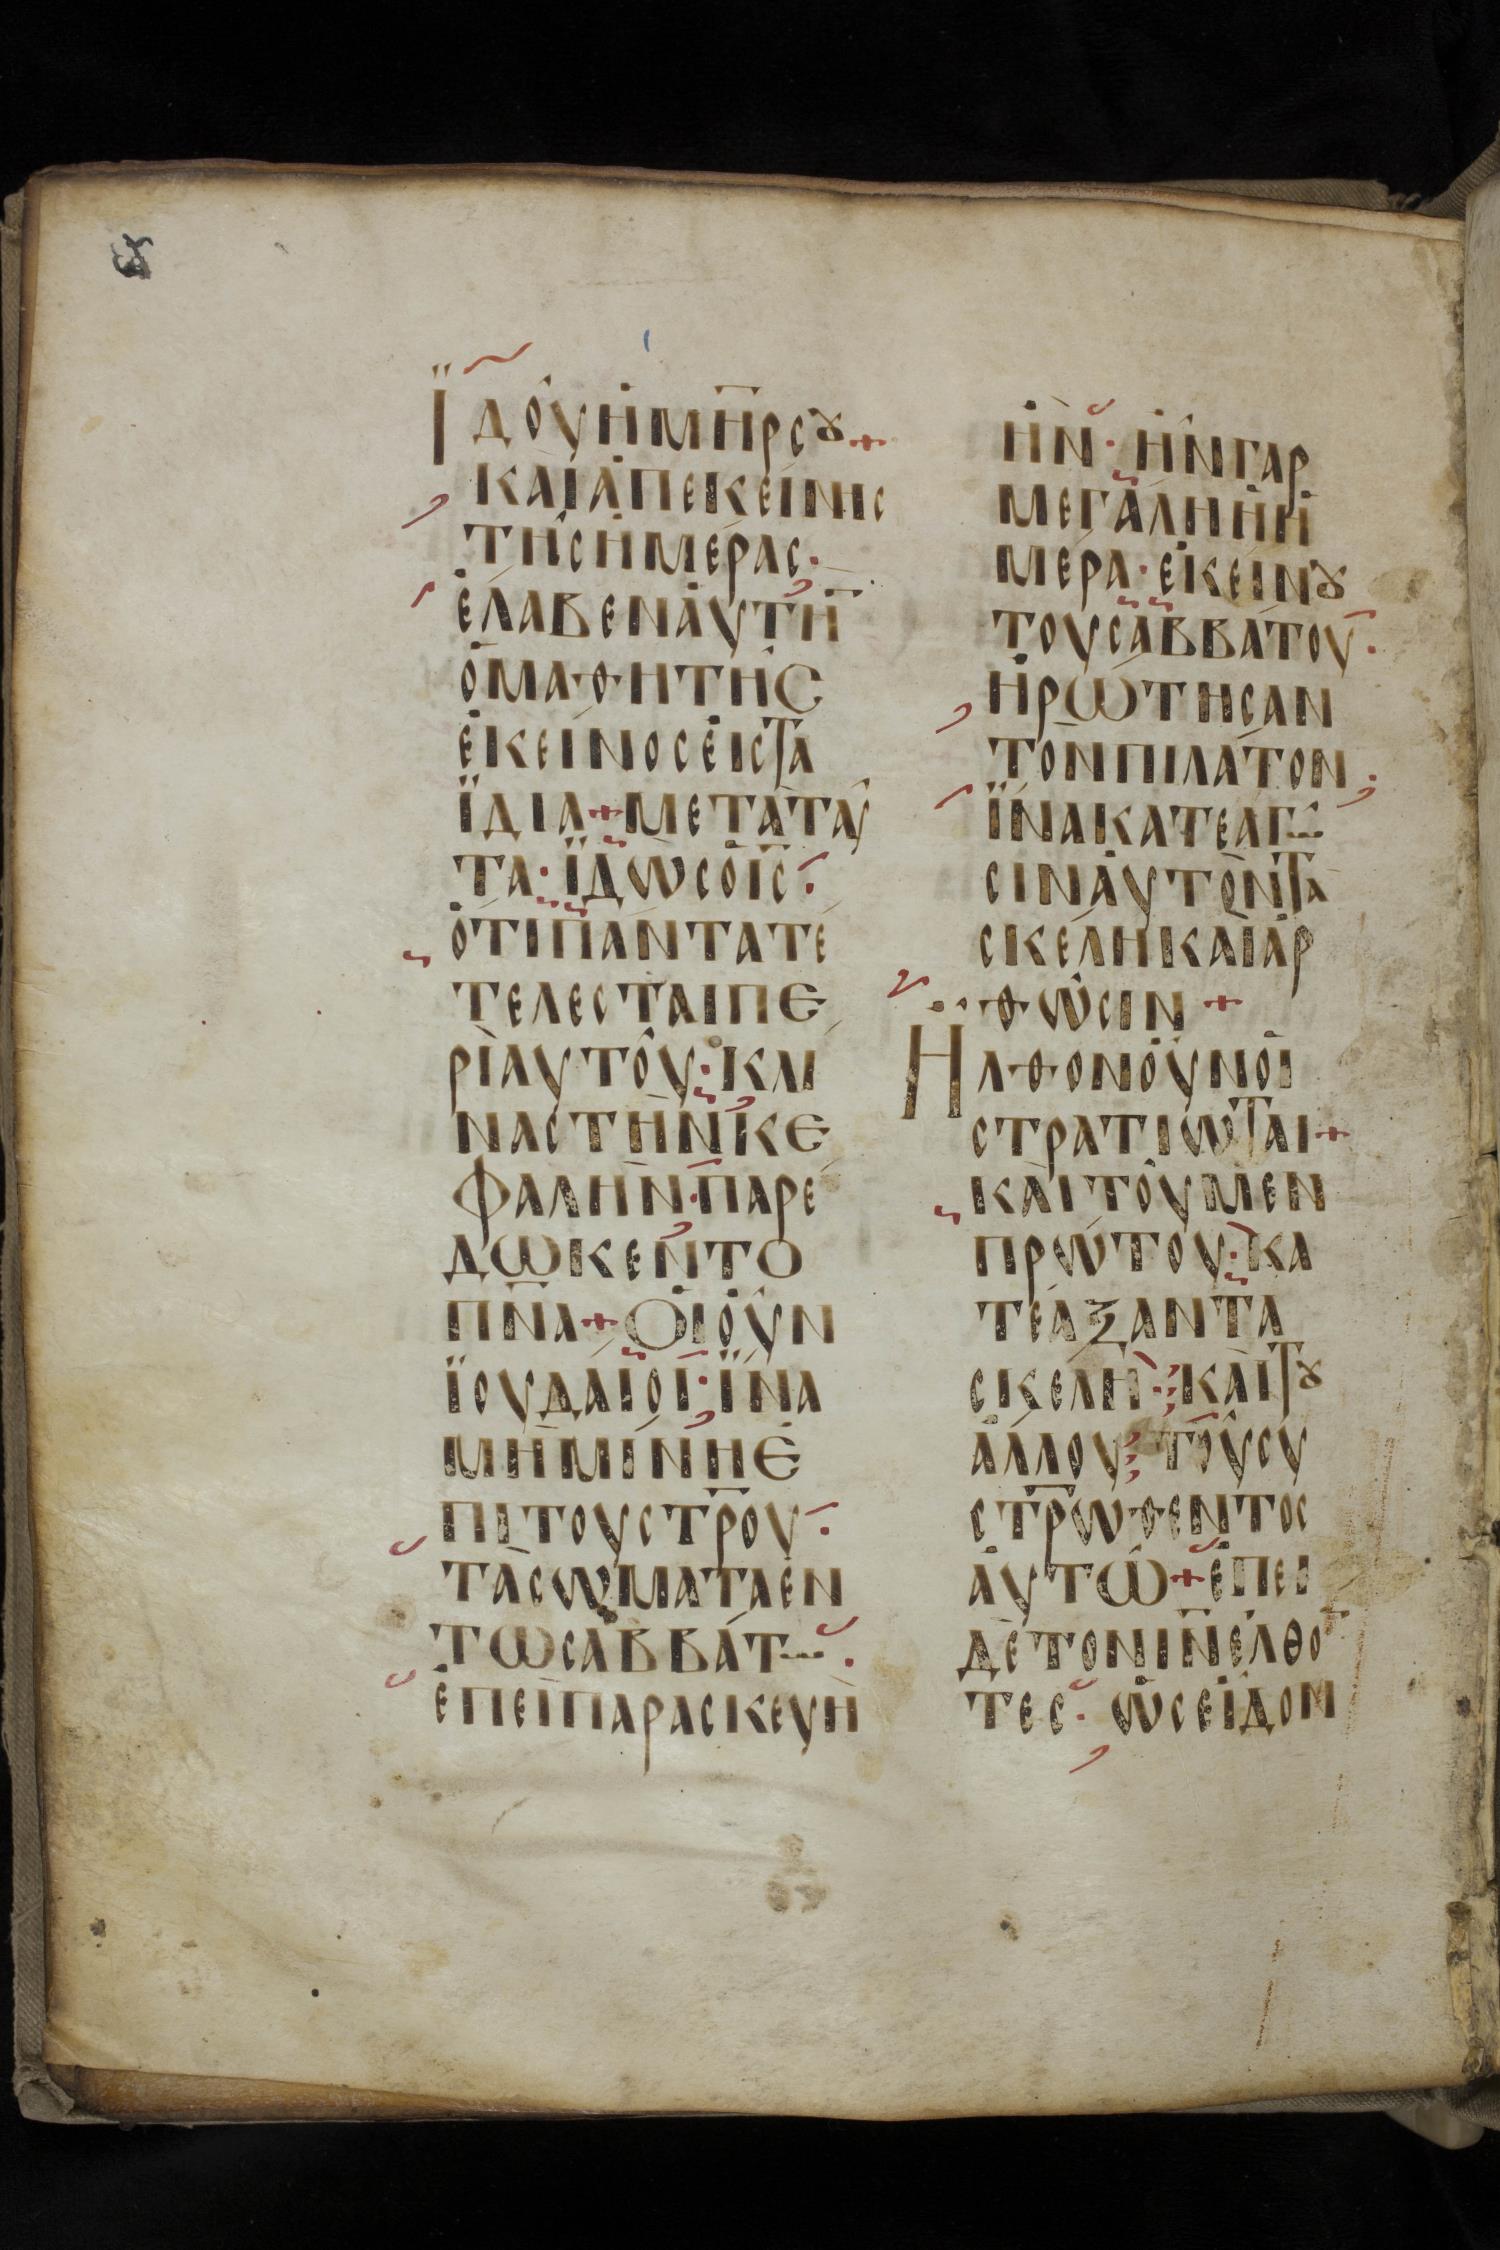 Ἰδοὺ ἡ μη̅ρ σȣ +
καὶ ἀπεκείνης
τῆς ἡμέρας ·
ἔλαβεν ἀυτὴ̅
ὁ μαθητὴς
ἐκεῖνος εἰς τὰ
ἴδια + μετὰ ταῦ
τα · ϊδὼς ὁ ι̅ς̅ ·
ὅτι πάντα τε
τέλεσται πε
ρὶ αυτοῦ · κλί
νας τὴν κε
φαλὴν · παρέ
δωκεν τὸ
π̅ν̅α + Οἱ οὖν
ϊουδαῖοι · ϊνα
μὴ μίνῃ ἐ
πὶ του στ̅ρ̅ου ·
τὰ σώματα ἐν
τω σαββάτω ·
ἐπεὶ παρασκευὴ
ἦν · ἦν γαρ
μεγάλη ἡ ἡ
μέρα · ἐκείνȣ
του σαββάτου ·
ἠρώτησαν
τὸν πιλάτον ·
ϊνα κατεαγω
σιν ἀυτῶν τὰ
σκέλη καὶ ἀρ
θῶσιν +
Ηλθον οὖν οἱ
στρατιῶται +
καὶ τοῦ μὲν
πρώτου · κα
τέαξαν τὰ
σκέλη · καὶ τȣ
ἄλλου · τοῦ συ
στ̅ρ̅ωθέντος
ἀυτῶ + ἐπει
δε τον ι̅ν̅ ἐλθο̅
τες · ὡς εἶδον